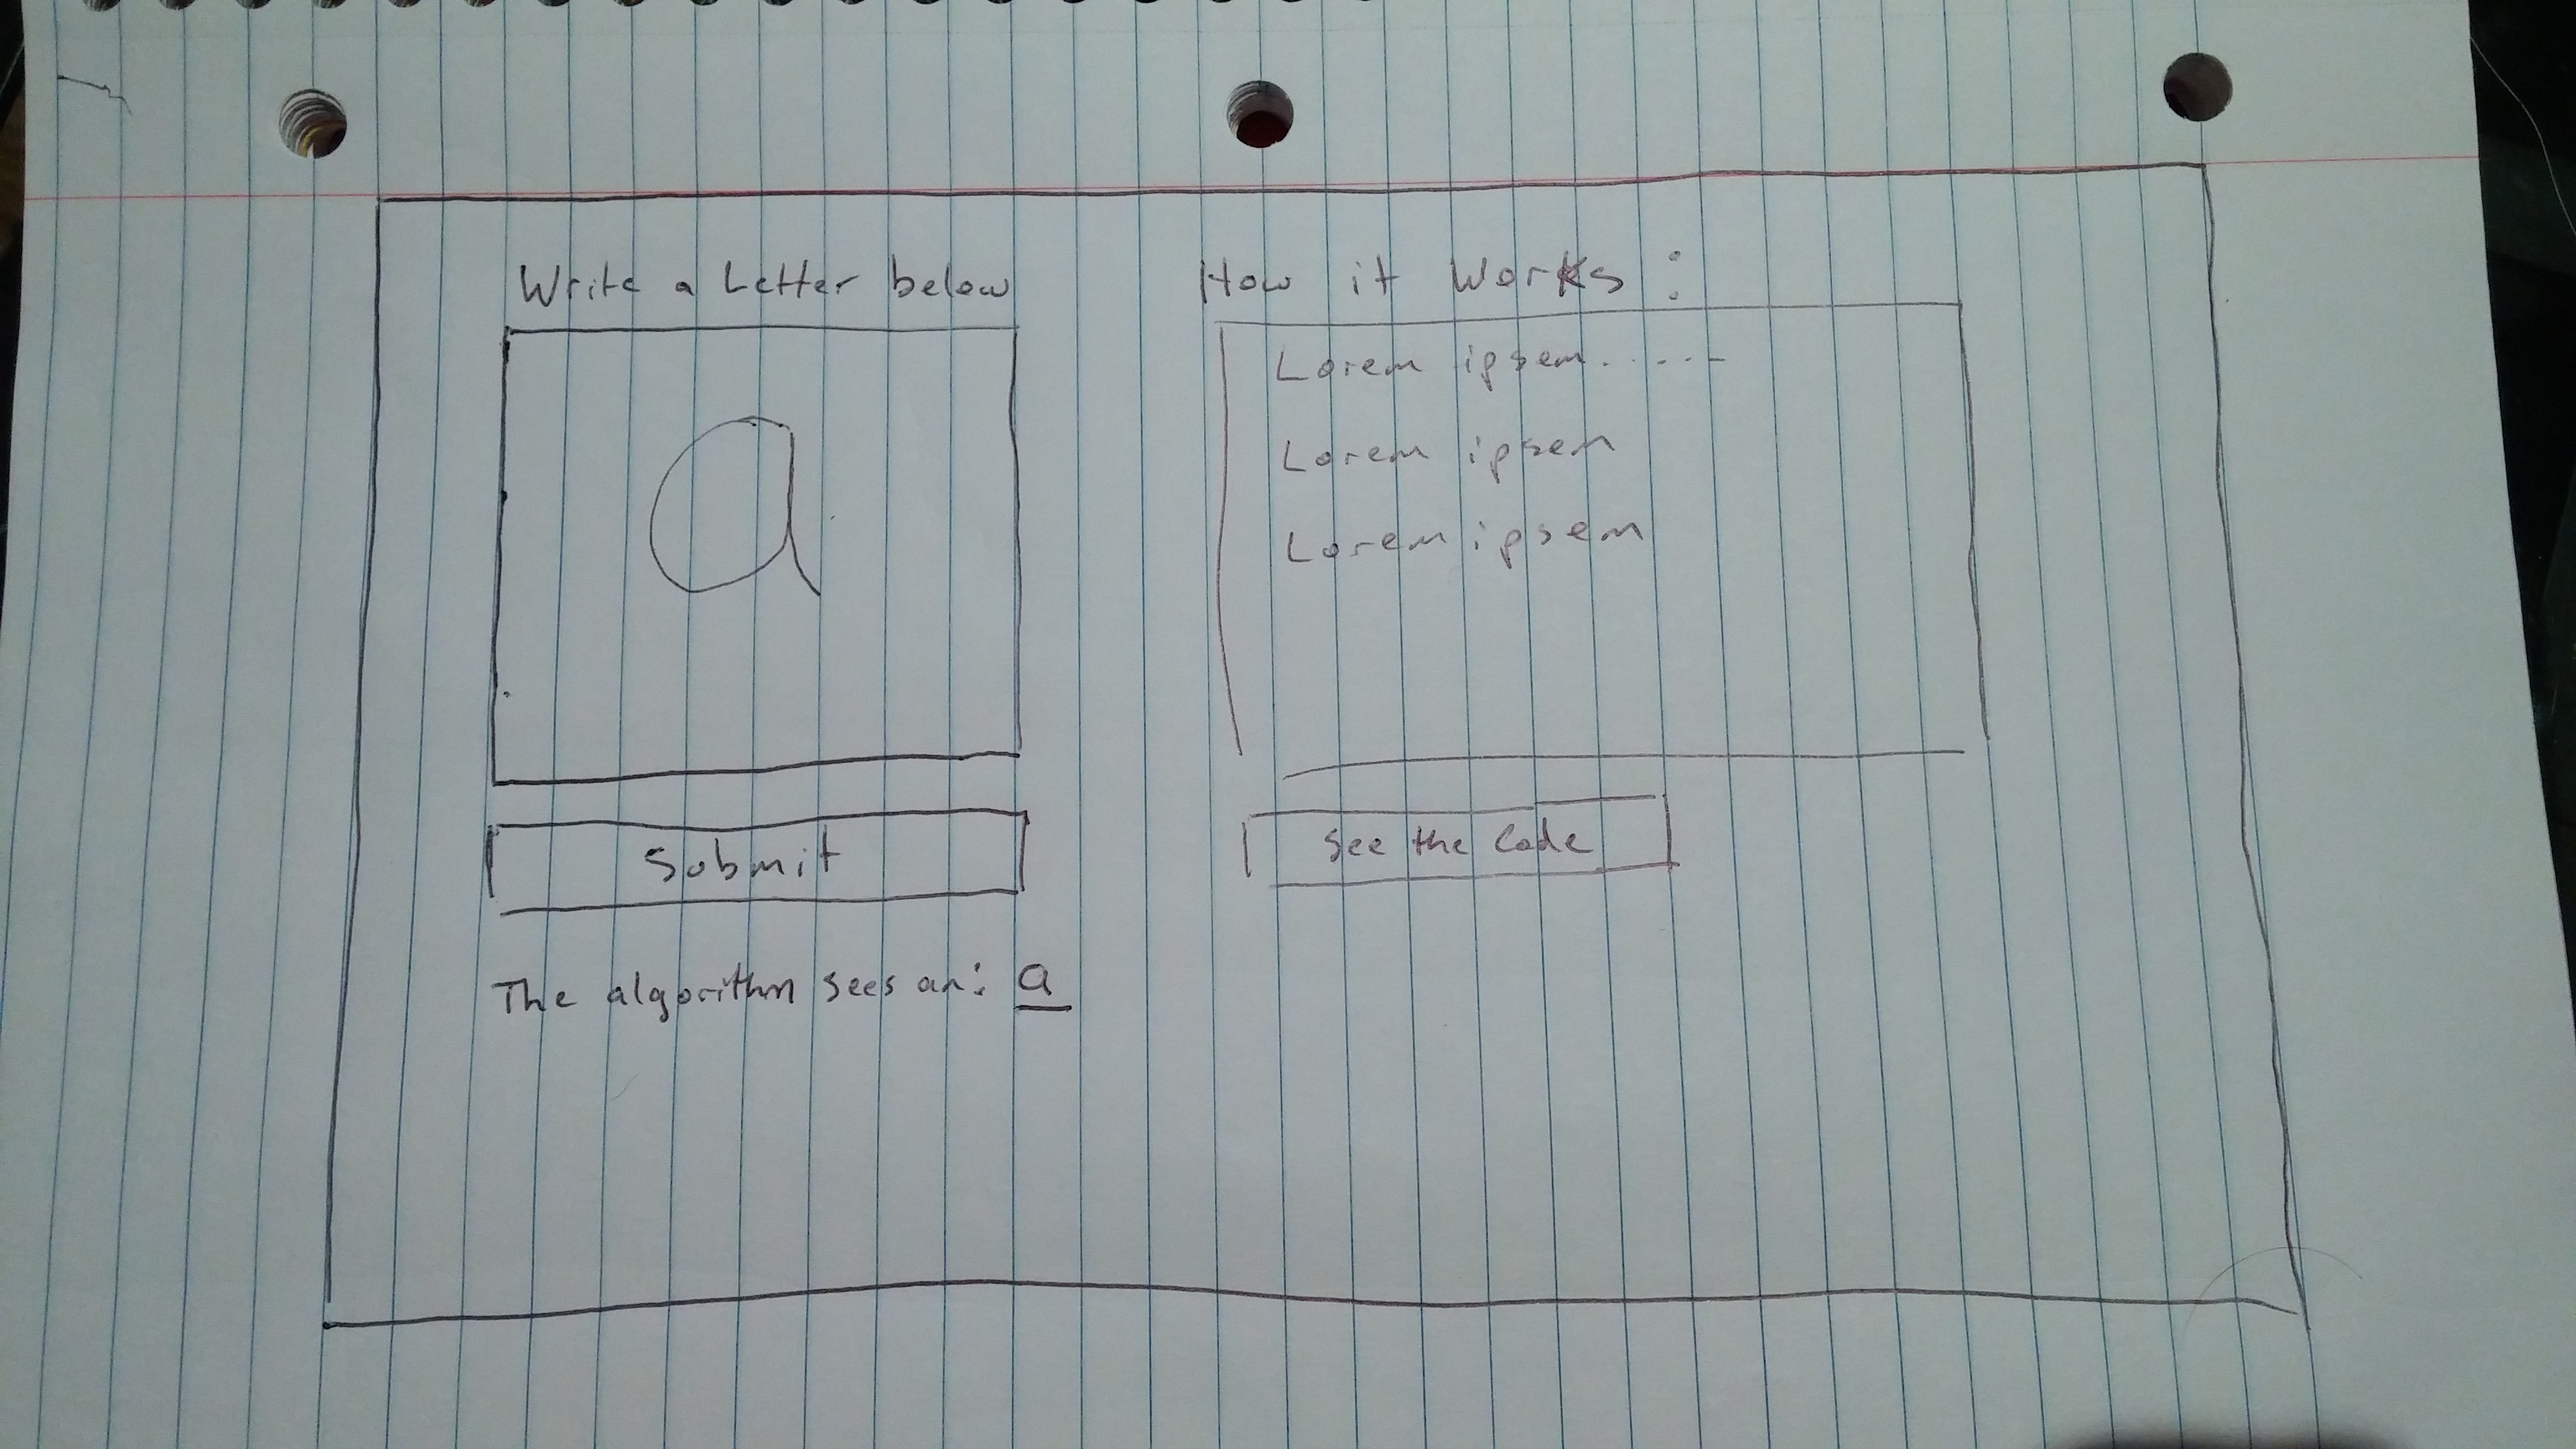 Write a Letter below
a
Submit
The algorithm sees an: a
How it Works:
Lorem ipsem.....
Lorem ipsem
Lorem ipsem
See the Code